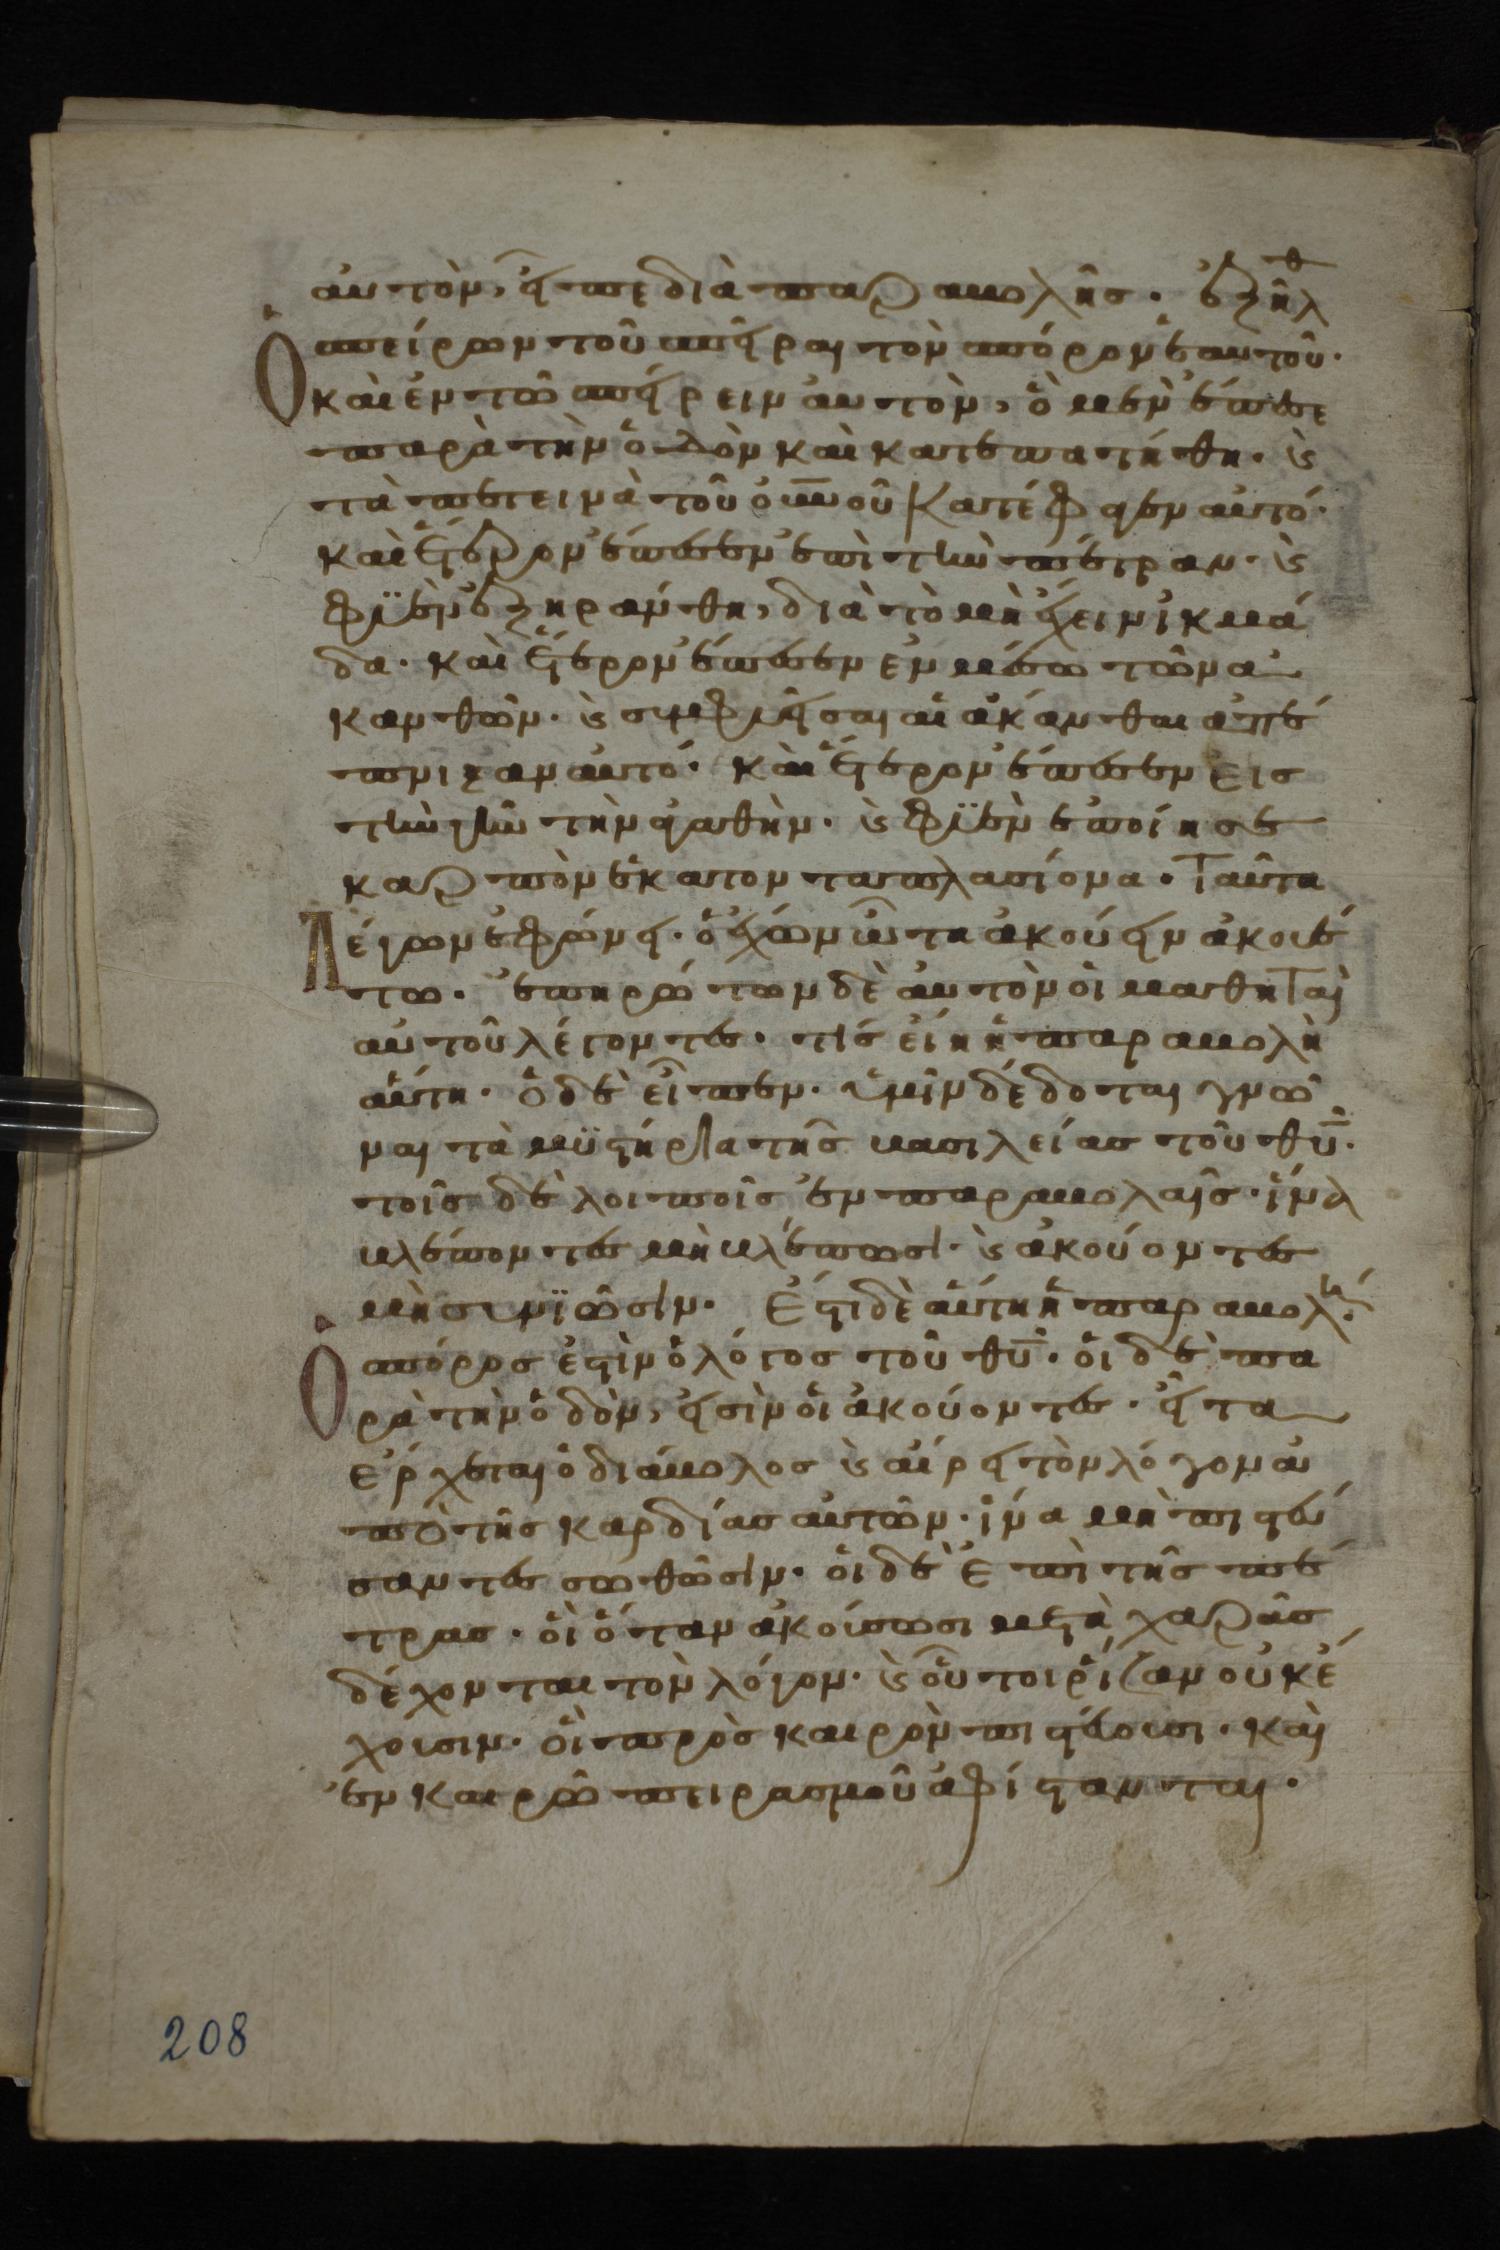 αυτὸν, εἶπε διὰ παραβολῆς. ἐξῆλθ
Ὁ σπείρων τοῦ σπεῖραι τὸν σπόρον ἑαυτοῦ.
καὶ ἐν τῶ σπείρειν αὐτὸν, ὃ μὲν ἔπεσε
παρὰ τὴν ὁδὸν καὶ κατεπατήθη. καὶ
τὰ πετεινὰ τοῦ οὐνοῦ κατέφαγεν αὐτό.
καὶ ἕτερον ἔπεσεν ἐπὶ τὴν πέτραν. καὶ
φυὲν ἐξηράνθη, διὰ τὸ μὴ ἔχειν ἰκμά
δα. καὶ ἕτερον ἔπεσεν ἐν μέσω τῶν ἀ
κανθῶν. καὶ συμφυεῖσαι αἱ ἄκανθαι ἀπέ
πνιξαν αὐτό. καὶ ἕτερον ἔπεσεν εἰς
τὴν γῆν τὴν ἀγαθὴν. καὶ φυὲν ἐποίησε
καρπὸν ἑκατονταπλασίονα. Ταῦτα
λέγων ἐφώνει. ὁ ἔχων ὦτα ἀκούειν ἀκουέ
τω. ἐπηρώτων δὲ αὐτὸν οἱ μαθηταὶ
αὐτοῦ λέγοντες. τίς εἴη ἡ παραβολὴ
αὕτη. ὁ δὲ εἶπεν. ὑμῖν δέδοται γνῶ
ναι τὰ μυστήρια τῆς βασιλείας τοῦ θῦ.
τοῖς δὲ λοιποῖς ἐν παραβολαῖς. ἵνα
βλέποντες μὴ βλέπωσι. καὶ ἀκούοντες
μὴ συνιῶσιν. Ἔστι δὲ αὕτη ἡ παραβολή.
Ὁ σπόρος ἐστὶν ὁ λόγος τοῦ θῦ. οἱ δὲ πα
ρὰ τὴν ὁδὸν, εἰσὶν οἱ ἀκούοντες. εἶτα
ἔρχεται ὁ διάβολος καὶ αἴρει τὸν λόγον ἀ
πὸ τῆς καρδίας αὐτῶν. ἵνα μὴ πιστεύ
σαντες σωθῶσιν. οἱ δὲ ἐπὶ τῆς πέ
τρας. οἳ ὅταν ἀκούσωσι μετὰ χαρᾶς
δέχονται τὸν λόγον. καὶ οὗτοι ῥίζαν οὐκ ἔ
χουσιν. οἳ πρὸς καιρὸν πιστεύουσι. καὶ
ἐν καιρῶ πειρασμοῦ ἀφίστανται.
208